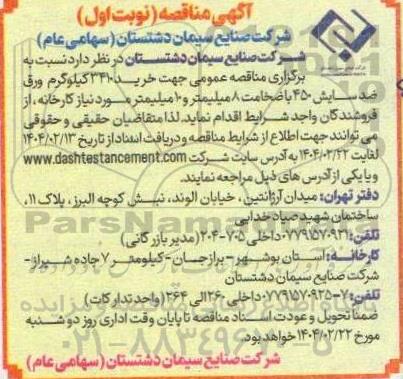 آگهی مناقصه (نوبت اول)
شرکت صنایع سیمان دشتستان (سهامی عام)
شرکت صنایع سیمان دشتستان در نظر دارد نسبت به
برگزاری مناقصه عمومی جهت خرید ۳۴۱۰ کیلوگرم ورق
ضد سایش ۴۵۰ با ضخامت ۸ میلیمتر و ۱۰ میلیمتر مورد نیاز کارخانه، از
فروشندگان واجد شرایط اقدام نماید. لذا متقاضیان حقیقی و حقوقی
می توانند جهت اطلاع از شرایط مناقصه و دریافت اسناد از تاریخ ۱۴۰۴/۰۲/۱۳
لغایت ۱۴۰۴/۰۲/۲۲ به آدرس سایت شرکت www.dashtestancement.com
و یا یکی از آدرس های ذیل مراجعه نمایند.
دفتر تهران: میدان آرژانتین، خیابان الوند، نبش کوچه البرز، پلاک ۱۱،
ساختمان شهید صیاد خدایی
تلفن: ۰۷۷۹۱۵۷۰۹۲۱ داخلی ۷۰۵-۲۰۴ (مدیر بازرگانی)
کارخانه: استان بوشهر - برازجان - کیلومتر ۷ جاده شیراز -
شرکت صنایع سیمان دشتستان
تلفن: ۷-۰۷۷۹۱۵۷۰۹۲۵ داخلی ۲۶۰ الی ۲۶۴ (واحد تدارکات)
ضمنا تحویل و عودت اسناد مناقصه تا پایان وقت اداری روز دوشنبه
مورخ ۱۴۰۴/۰۲/۲۲ خواهد بود.
شرکت صنایع سیمان دشتستان (سهامی عام)